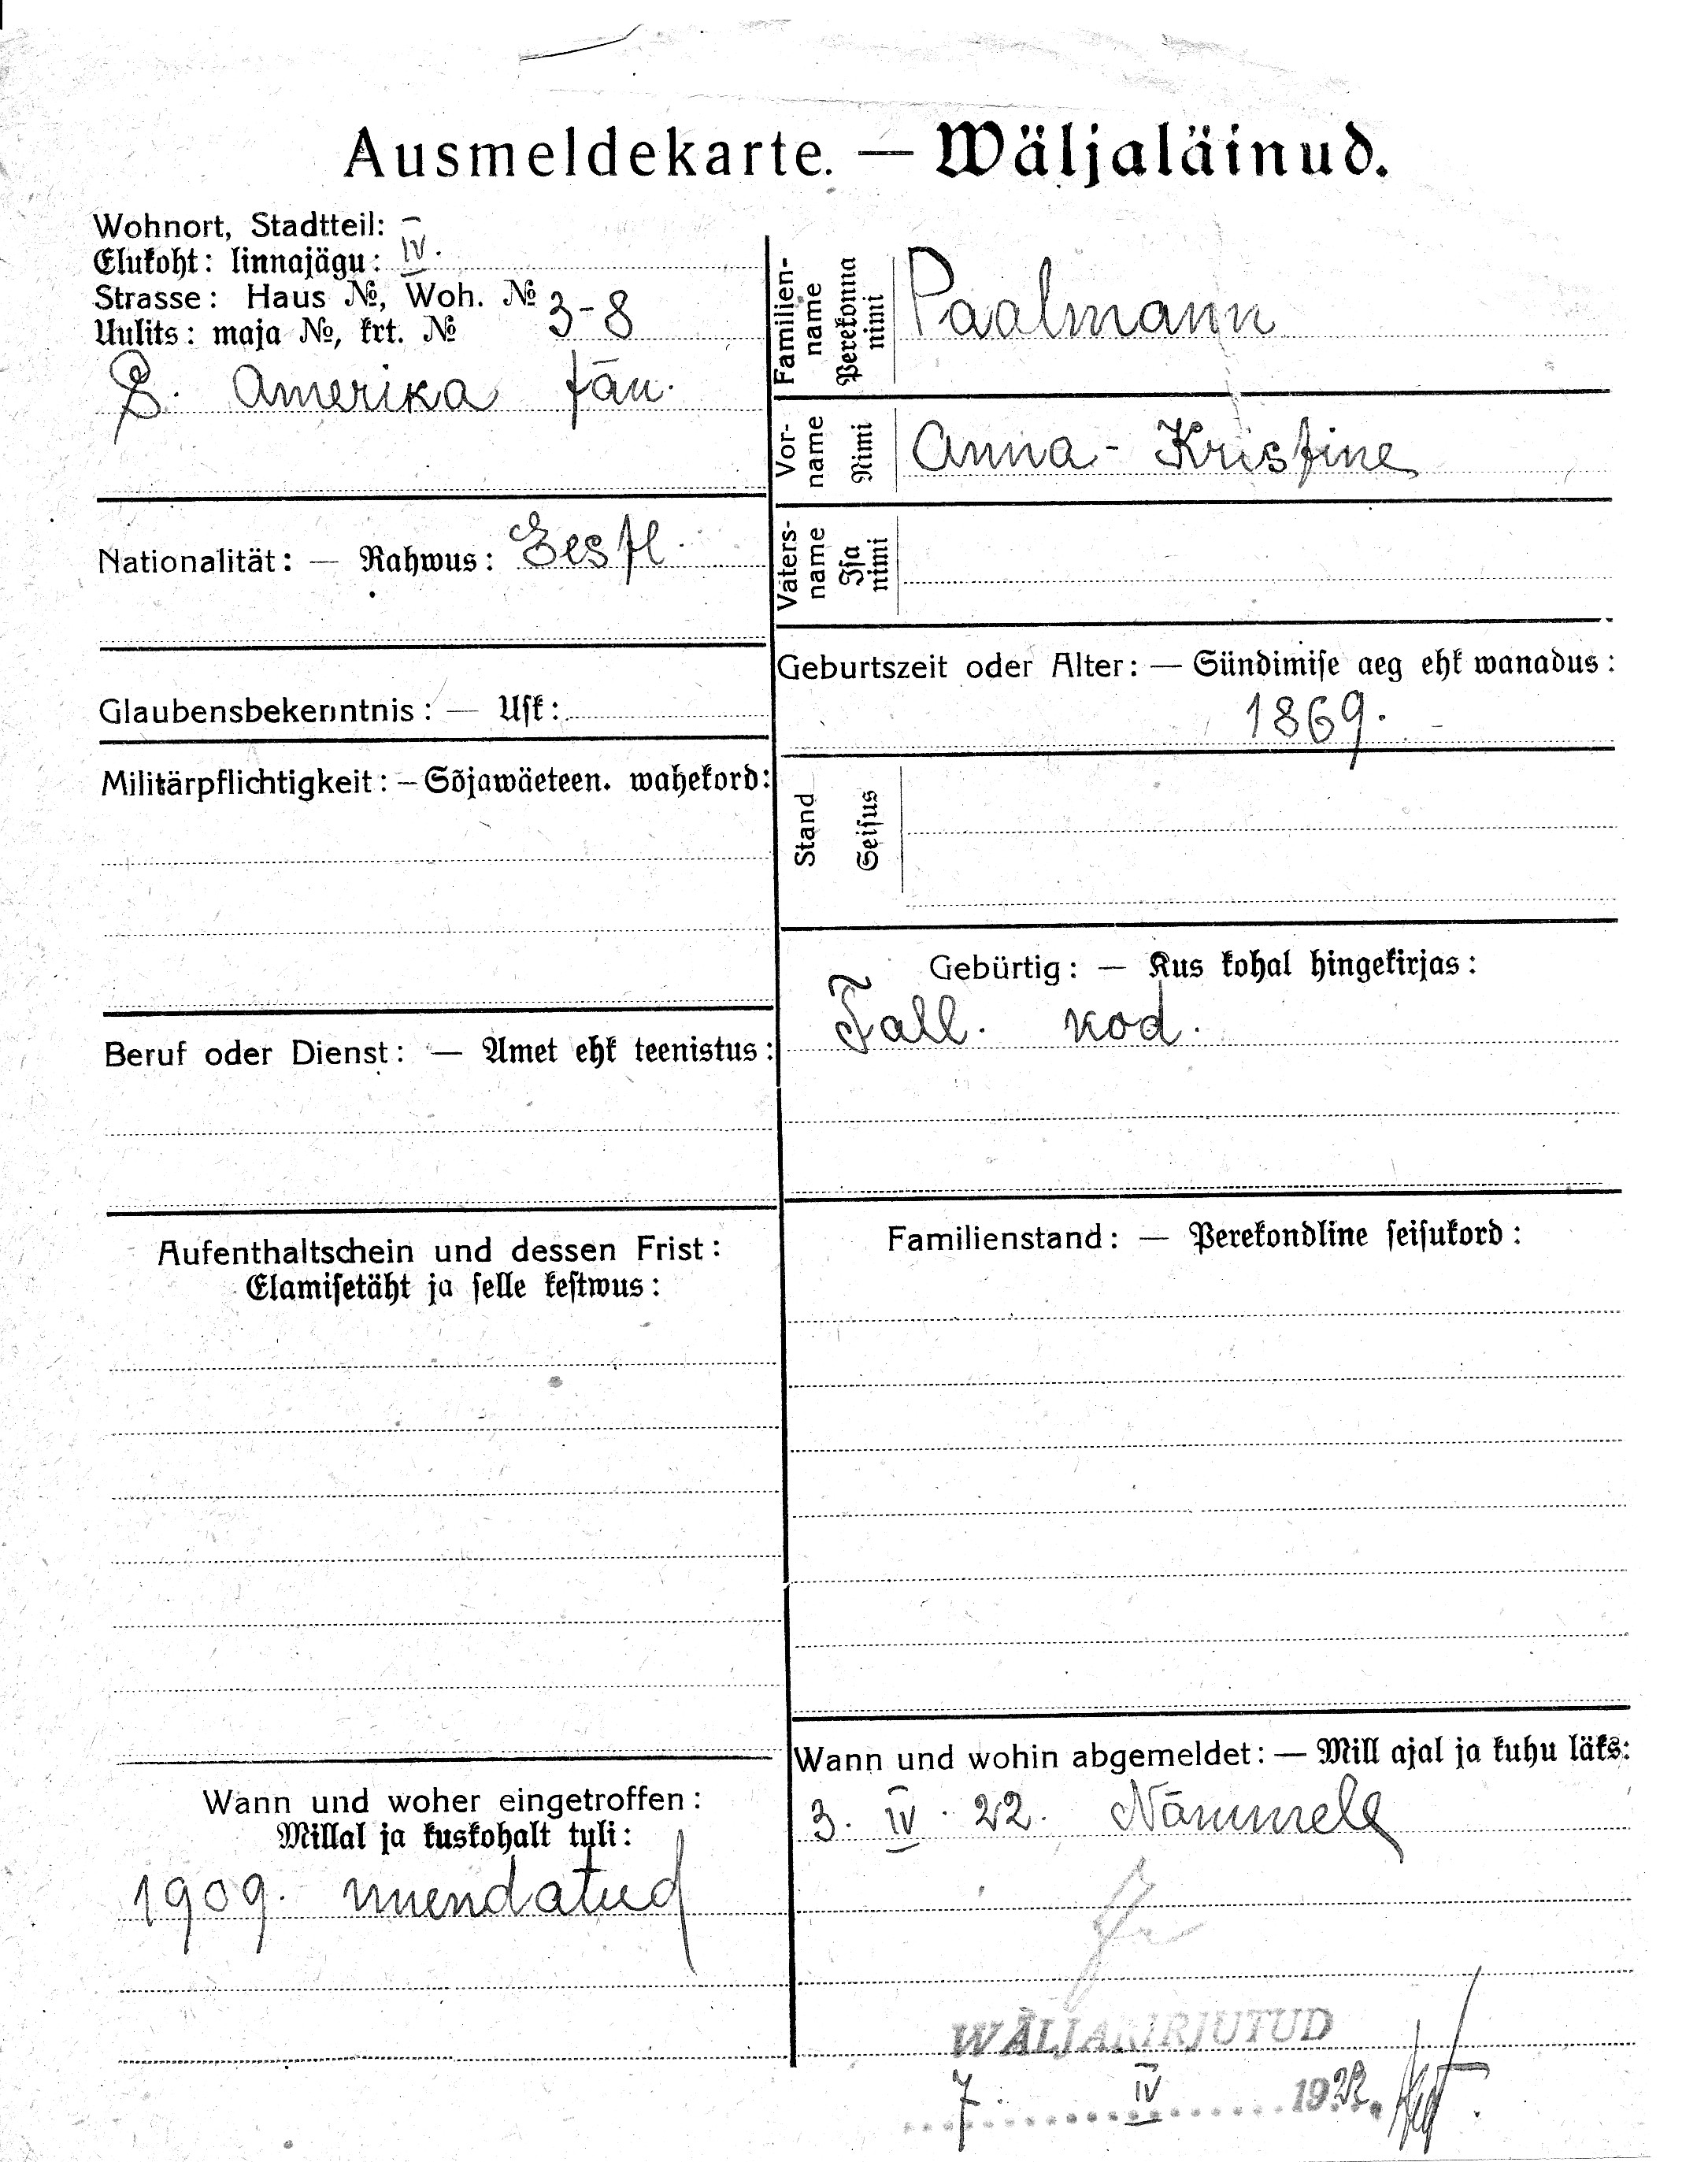 Ausmeldekarte. — Wäljaläinud.
Wohnort, Stadtteil:
Elukoht: linnajägu: IV.
Strasse: Haus №, Woh. № 3-8
Uulits: maja №, krt. №
Amerika tän.
Nationalität: — Rahwus: Eestl.
Glaubensbekenntnis: — Usk:
Militärpflichtigkeit: — Sõjawäeteen. wahekord:
Beruf oder Dienst: — Amet ehk teenistus:
Aufenthaltschein und dessen Frist:
Elamisetäht ja selle kestwus:
Wann und woher eingetroffen:
Millal ja kuskohalt tuli:
1909. muendatud
Familien-
name
Perekonna
nimi
Paalmann
Vor-
name
Nimi
Anna-Kristine
Vaters-
name
Isa
nimi
Geburtszeit oder Alter: — Sündimise aeg ehk wanadus:
1869.
Stand
Seisus
Gebürtig: — Kus kohal hingekirjas:
Tall. kod.
Familienstand: — Perekondline seisukord:
Wann und wohin abgemeldet: — Mill ajal ja kuhu läks:
3. IV. 22. Nõmmele
WÄLJAKIRJUTUD
7. IV 1922.